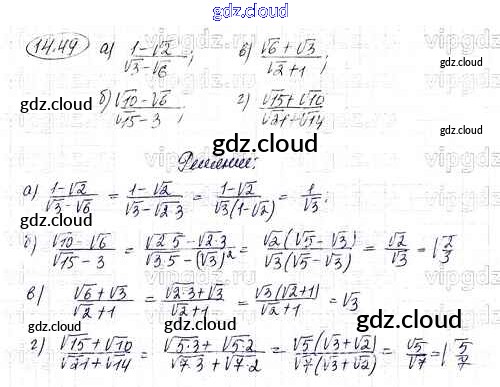 gdz.cloud
14.49 а) (1-√2)/(√3-√6); в) (√6+√3)/(√2+1);
б) (√10-√6)/(√15-3); г) (√15+√10)/(√21+√14)
gdz.cloud
gdz.cloud
gdz.cloud
gdz.cloud
Решение:
а) (1-√2)/(√3-√6) = (1-√2)/(√3-√2·3) = (1-√2)/(√3(1-√2)) = 1/√3;
gdz.cloud
б) (√10-√6)/(√15-3) = (√2·5-√2·3)/(√3·5-(√3)²) = (√2(√5-√3))/(√3(√5-√3)) = √2/√3 = √(2/3)
в) (√6+√3)/(√2+1) = (√2·3+√3)/(√2+1) = (√3(√2+1))/(√2+1) = √3
gdz.cloud
gdz.cloud
г) (√15+√10)/(√21+√14) = (√5·3+√5·2)/(√7·3+√7·2) = (√5(√3+√2))/(√7(√3+√2)) = √5/√7 = √(5/7)